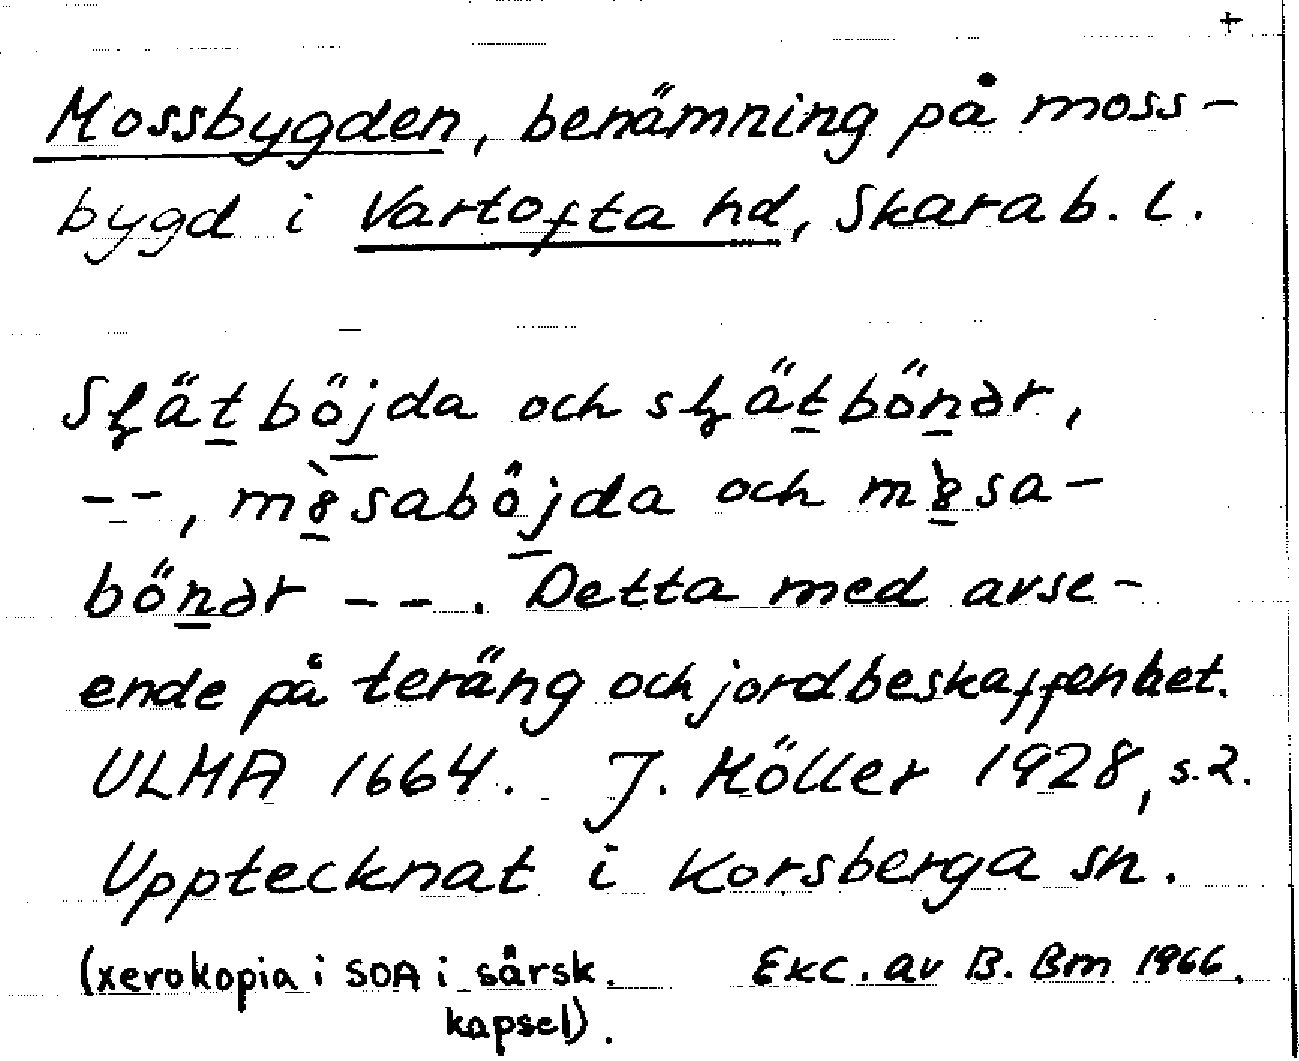 +
Mossbygden, benämning på moss-
bygd i Vartofta hd, Skarab. l.
Slätböjda och slätböndr,
--, m8̀saböjda och m8̀sa-
böndr --. Detta med avse-
ende på teräng och jordbeskaffenhet.
ULMA 1664. J. Möller 1928, s.2.
Upptecknat i Korsberga sn.
(xerokopia i SOA i särsk. Exc. av B. Bm 1966.
kapsel).